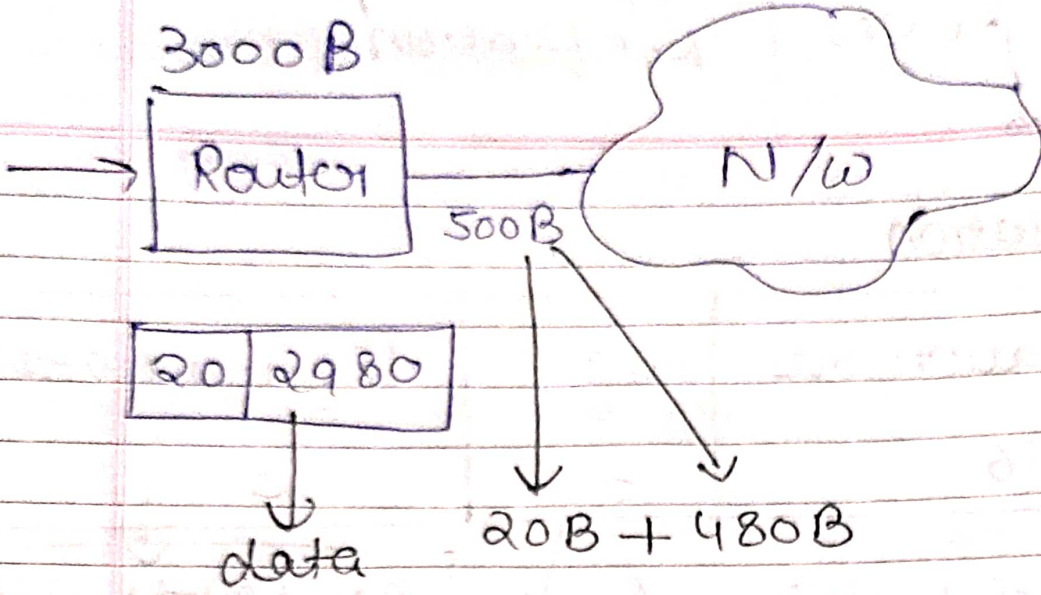 3000B
Router
N/w
500B
20 2980
data
20B + 480B